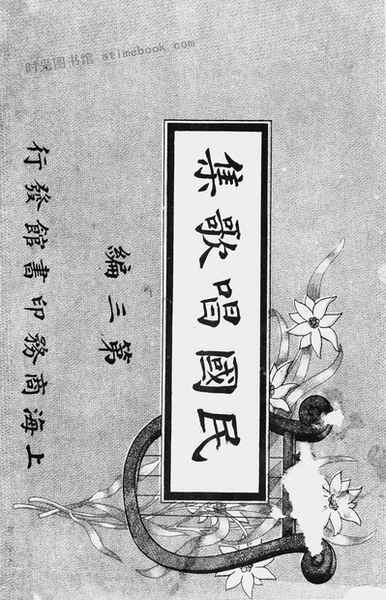 时光图书馆 atimebook.com
民國唱歌集
第三編
上海商務印書館發行